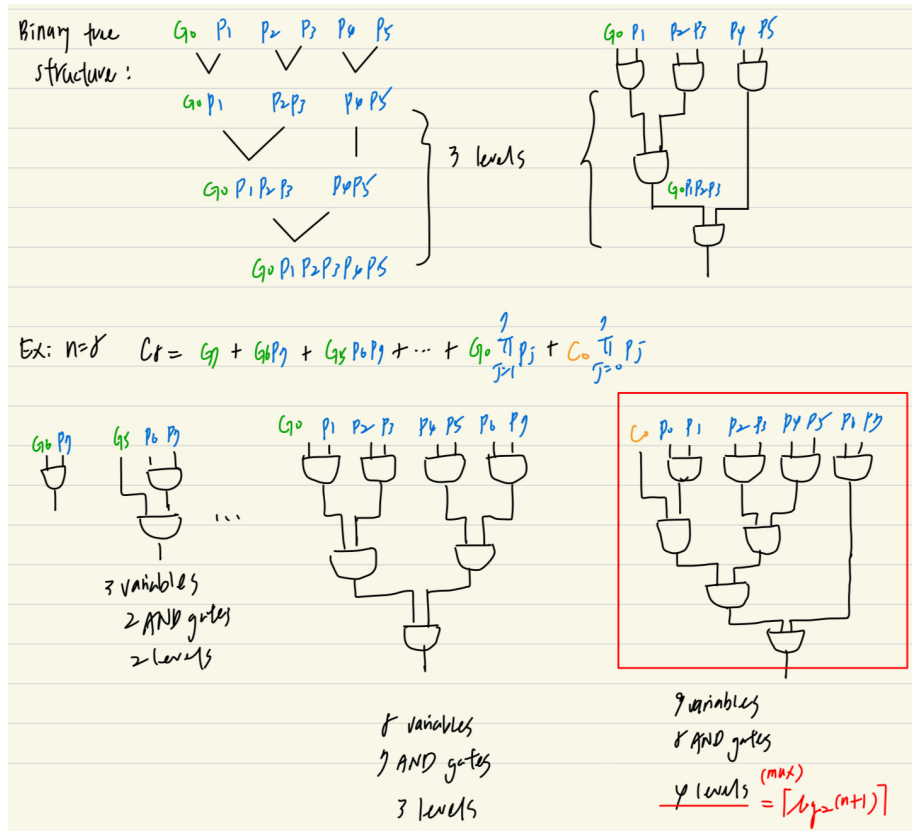 Binary tree structure:
G0 P1 P2 P3 P4 P5
G0P1 P2P3 P4P5
G0P1P2P3 P4P5
G0P1P2P3P4P5
3 levels
G0 P1 P2 P3 P4 P5
G0P1P2P3
Ex: n=8 C8 = G7 + G6P7 + G5P6P7 + ... + G0 7 π j=1 Pj + C0 7 π j=0 Pj
G6 P7
G5 P6 P7
...
3 variables
2 AND gates
2 levels
G0 P1 P2 P3 P4 P5 P6 P7
8 variables
7 AND gates
3 levels
C0 P0 P1 P2 P3 P4 P5 P6 P7
9 variables
8 AND gates
4 levels (max) = ⌈log2(n+1)⌉